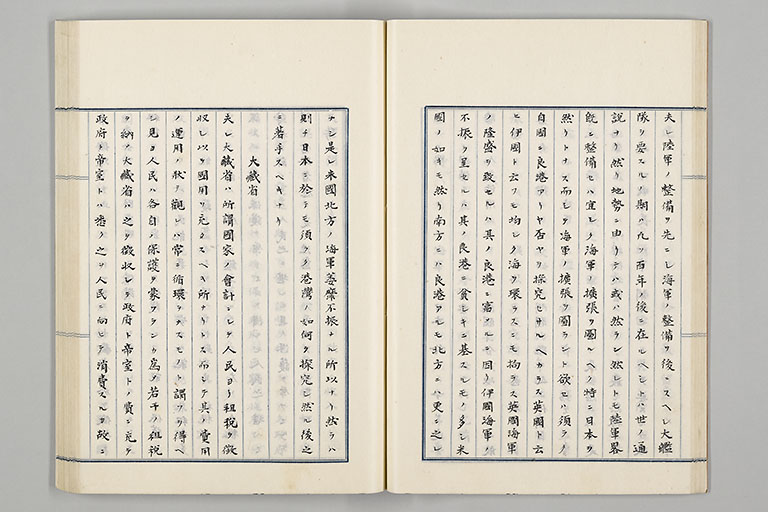 夫レ陸軍ノ整備ヲ先ニシ海軍ノ整備ヲ後ニスヘシ大艦
隊ヲ要スルノ期ハ凡ソ百年ノ後ニ在ルヘシトハ世ノ通
說ナリ然リ地勢ニ由リテハ或ハ然ラン然レトモ陸軍畧
既ニ整備セハ宜シク海軍ノ擴張ヲ圖ルヘク特ニ日本ヲ
然リトナス而シテ海軍ノ擴張ヲ圖ラント欲セハ須ラク
自國ニ良港アリヤ否ヤヲ探究セサルヘカラス英國ト云
ヒ伊國ト云フモ均シク海ヲ環ラスニモ拘ラス英國海軍
ノ隆盛ヲ致セルハ其ノ良港ニ富メルニ因リ伊國海軍ノ
不振ヲ呈セルハ其ノ良港ニ貧シキニ基スルモノ多シ米
國ノ如キモ然リ南方ニハ良港アルモ北方ニハ更ニ之レ
ナシ是レ米國北方ノ海軍萎靡不振ナル所以ナリ然ラハ
則チ日本ニ於テモ須ラク港灣ノ如何ヲ探究シ然ル後之
ニ著手スヘキナリ
大藏省
夫レ大藏省ハ所謂國家ノ會計ニシテ人民ヨリ租稅ヲ徵
收シ以テ國用ヲ充タスヘキ所ナリトス而シテ其ノ費用
ノ運用ノ狀ヲ觀レハ常ニ循環ヲナスモノト謂フヲ得ヘ
シ見ヨ人民ハ各自ノ保護ヲ蒙ラランカ爲メ若干ノ租稅
ヲ納メ大藏省ハ之ヲ徵收シテ政府ト帝室トノ費ニ充テ
政府ト帝室トハ悉ク之ヲ人民ニ向ヒテ消費スルカ故ニ